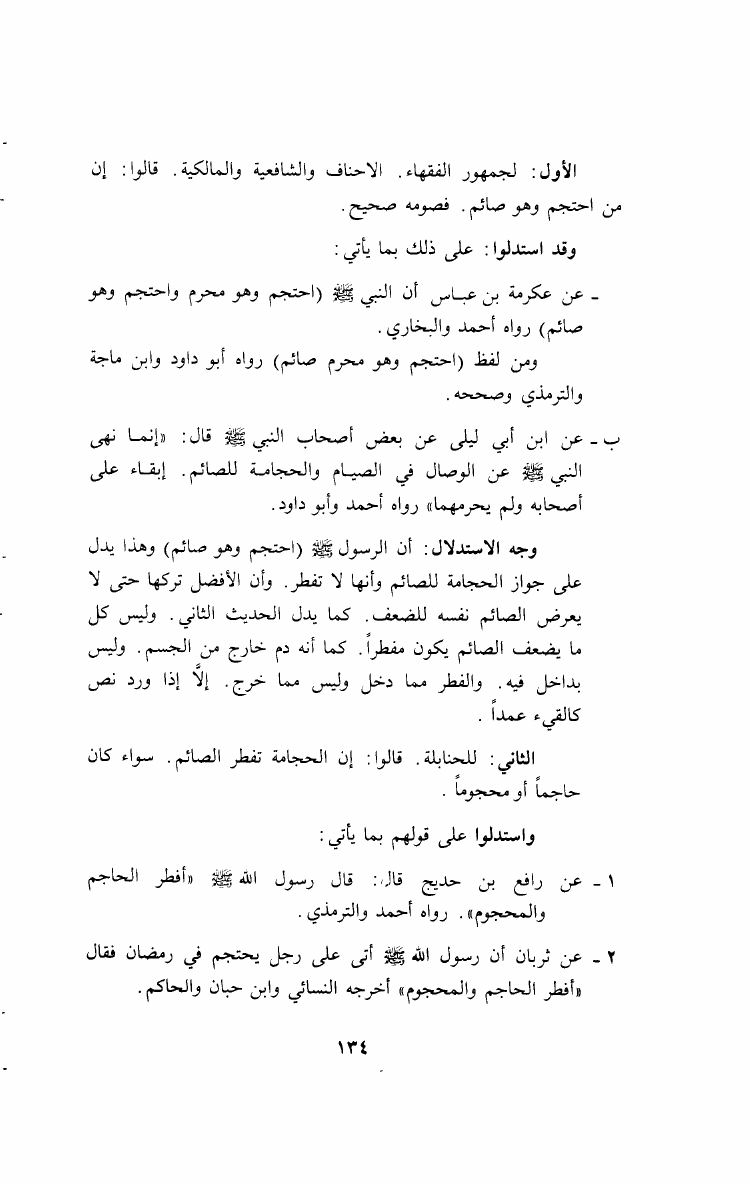 الأول: لجمهور الفقهاء. الاحناف والشافعية والمالكية. قالوا: إن
من احتجم وهو صائم. فصومه صحيح.
وقد استدلوا: على ذلك بما يأتي:
ـ عن عكرمة بن عباس أن النبي ﷺ (احتجم وهو محرم واحتجم وهو
صائم) رواه أحمد والبخاري.
ومن لفظ (احتجم وهو محرم صائم) رواه أبو داود وابن ماجة
والترمذي وصححه.
ب ـ عن ابن أبي ليلى عن بعض أصحاب النبي ﷺ قال: «إنما نهى
النبي ﷺ عن الوصال في الصيام والحجامة للصائم. إبقاء على
أصحابه ولم يحرمهما» رواه أحمد وأبو داود.
وجه الاستدلال: أن الرسول ﷺ (احتجم وهو صائم) وهذا يدل
على جواز الحجامة للصائم وأنها لا تفطر. وأن الأفضل تركها حتى لا
يعرض الصائم نفسه للضعف. كما يدل الحديث الثاني. وليس كل
ما يضعف الصائم يكون مفطراً. كما أنه دم خارج من الجسم. وليس
بداخل فيه. والفطر مما دخل وليس مما خرج. إلاَّ إذا ورد نص
كالقيء عمداً.
الثاني: للحنابلة. قالوا: إن الحجامة تفطر الصائم. سواء كان
حاجماً أو محجوماً.
واستدلوا على قولهم بما يأتي:
١ ـ عن رافع بن حديج قال: قال رسول الله ﷺ «أفطر الحاجم
والمحجوم». رواه أحمد والترمذي.
٢ ـ عن ثربان أن رسول الله ﷺ أتى على رجل يحتجم في رمضان فقال
«أفطر الحاجم والمحجوم» أخرجه النسائي وابن حبان والحاكم.
١٣٤